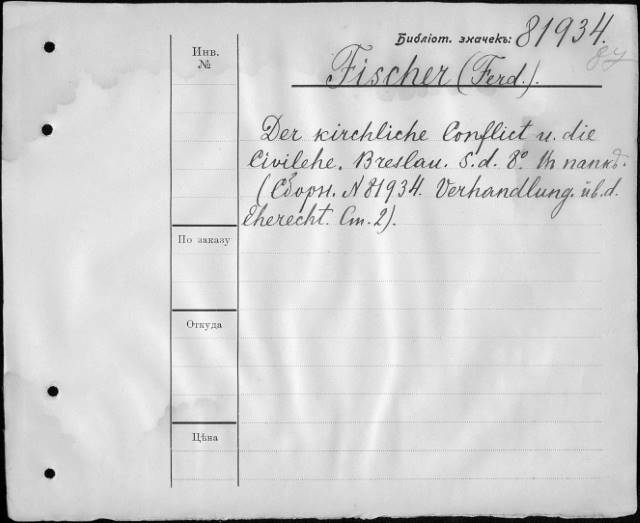 Библіот. значекъ: 81934.
87
Инв.
№
Fischer (Ferd.).
Der kirchliche Conflict u. die
Civilehe. Breslau. S. d. 8° In папкѣ.
(Сборн. N 81934. Verhandlung. üb. d.
Eherecht. Ст. 2).
По заказу
Откуда
Цѣна